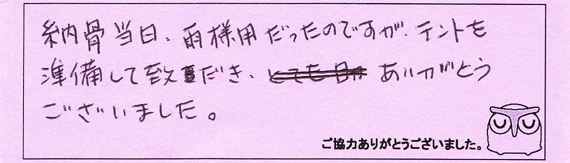 納骨当日、雨様用だったのですが、テントを
準備して致だき、ありがとう
ございました。
ご協力ありがとうございました。